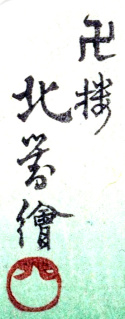 卍楼
北鵞繪